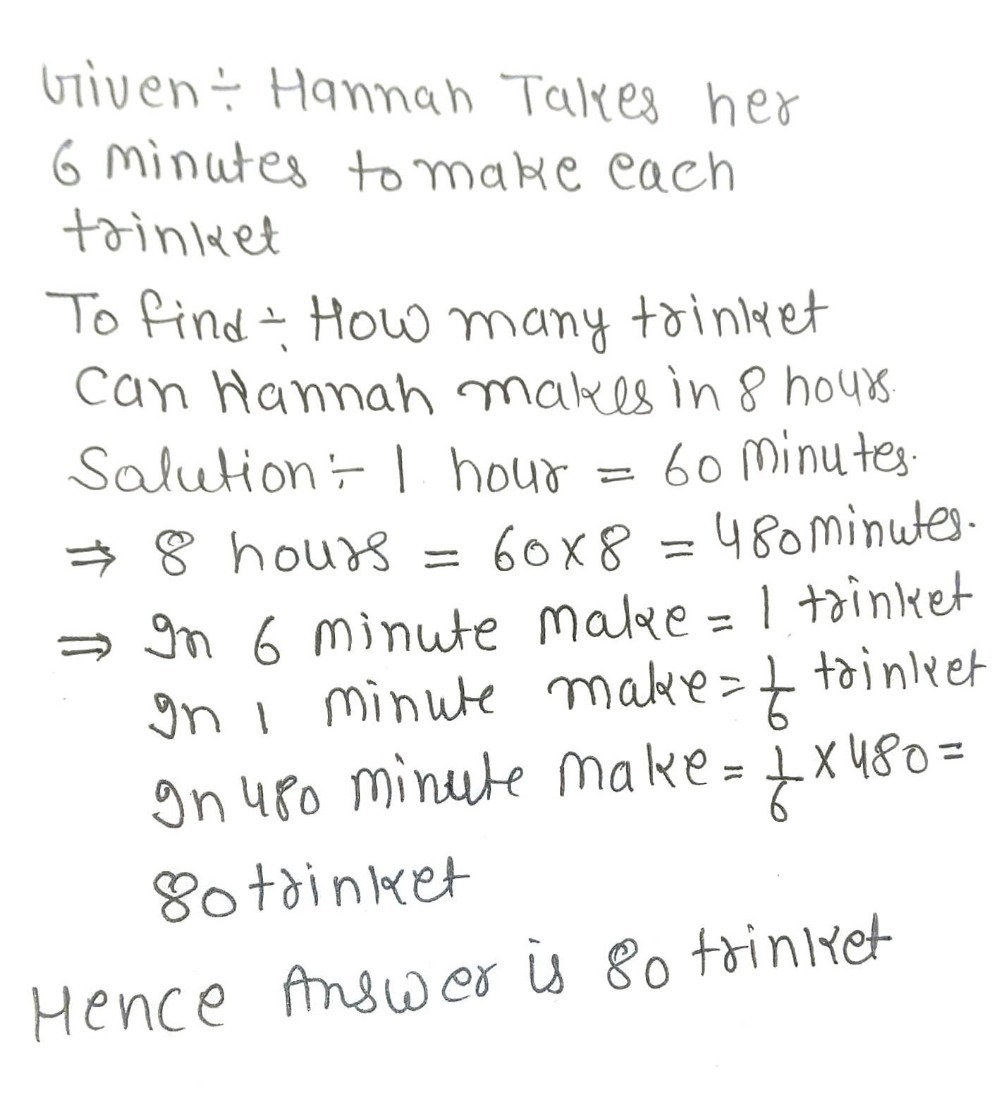 Given ÷ Hannah Takes her
6 minutes to make each
trinket
To find ÷ How many trinket
Can Hannah makes in 8 hours.
Solution ÷ 1 hour = 60 minutes.
⇒ 8 hours = 60 x 8 = 480 minutes.
⇒ In 6 minute make = 1 trinket
In 1 minute make = 1/6 trinket
In 480 minute make = 1/6 x 480 =
80 trinket
Hence Answer is 80 trinket